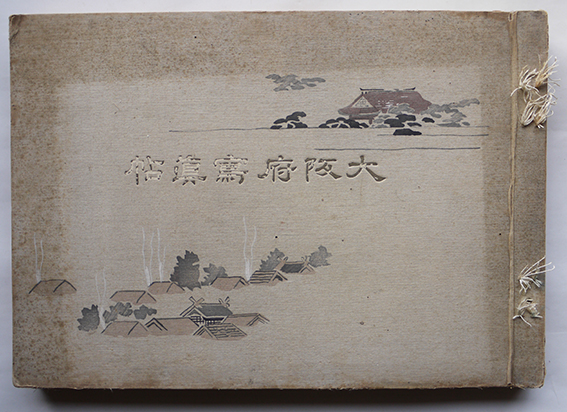 大阪府寫真帖